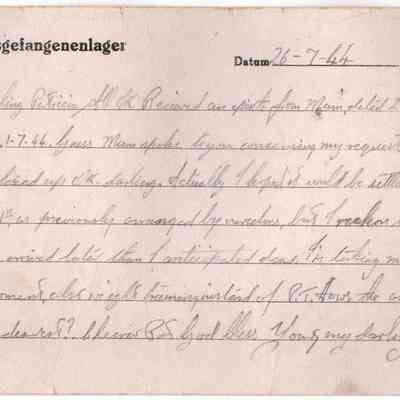 sgefangenenlager
Datum 26-7-44
ling Patricia All O.K. Received an from Mum, dated 2
1-7-44. Guess Mum spoke to you concerning my request
up O.K. darling. Actually I hoped it would be settle
1st as previously arranged by ourselves, but I reckon
arrived later than I anticipated dear. I'm taking m
oment, also weight training instead of P.T. How's the
dearest? Cheerio P.S. God Bless. Yours my darli